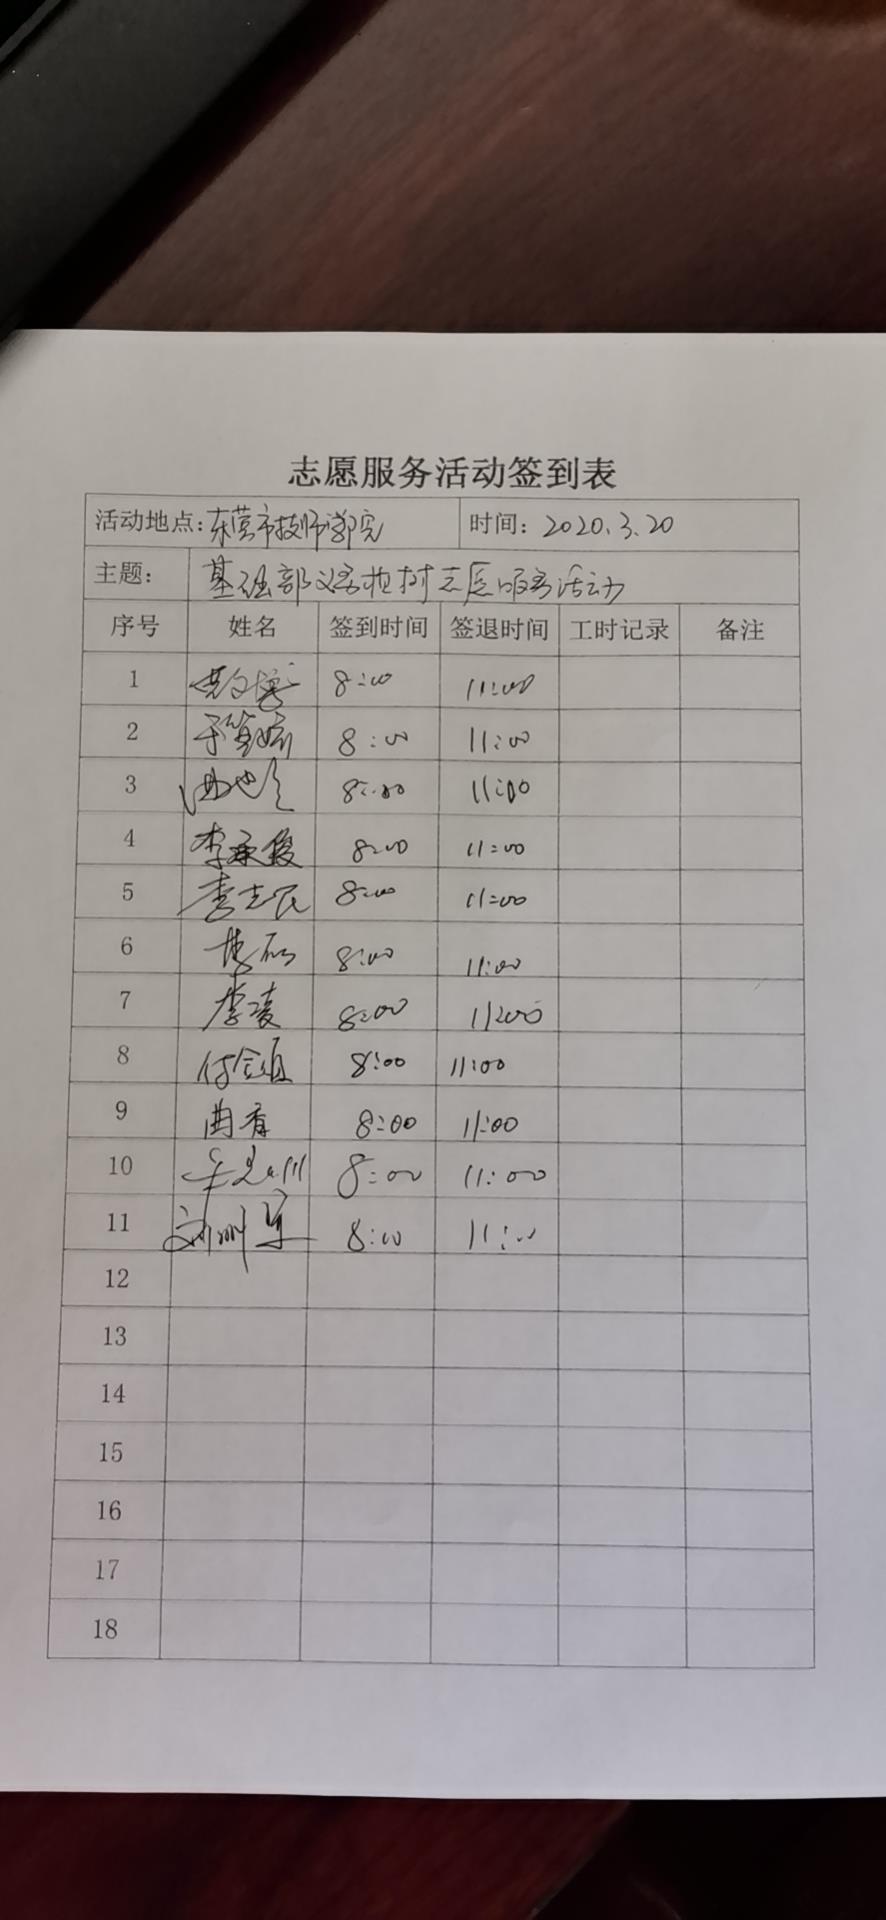 志愿服务活动签到表
活动地点：东营市技师学院 时间：2020.3.20
主题： 基础部义务植树志愿服务活动
序号 姓名 签到时间 签退时间 工时记录 备注
1 8:00 11:00
2 8:00 11:00
3 8:00 11:00
4 8:00 11:00
5 李志民 8:00 11:00
6 8:00 11:00
7 李凌 8:00 11:00
8 8:00 11:00
9 曲香 8:00 11:00
10 8:00 11:00
11 8:00 11:00
12
13
14
15
16
17
18